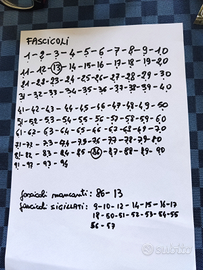 FASCICOLI
1-2-3-4-5-6-7-8-9-10
11-12-13-14-15-16-17-18-19-20
21-22-23-24-25-26-27-28-29-30
31-32-33-34-35-36-37-38-39-40
41-42-43-44-45-46-47-48-49-50
51-52-53-54-55-56-57-58-59-60
61-62-63-64-65-66-67-68-69-70
71-72-73-74-75-76-77-78-79-80
81-82-83-84-85-86-87-88-89-90
91-92-93-
fascicoli mancanti: 86-13
fascicoli SIGILLATI: 9-10-12-14-15-16-17
18-50-51-52-53-54-55
56-57
Subito